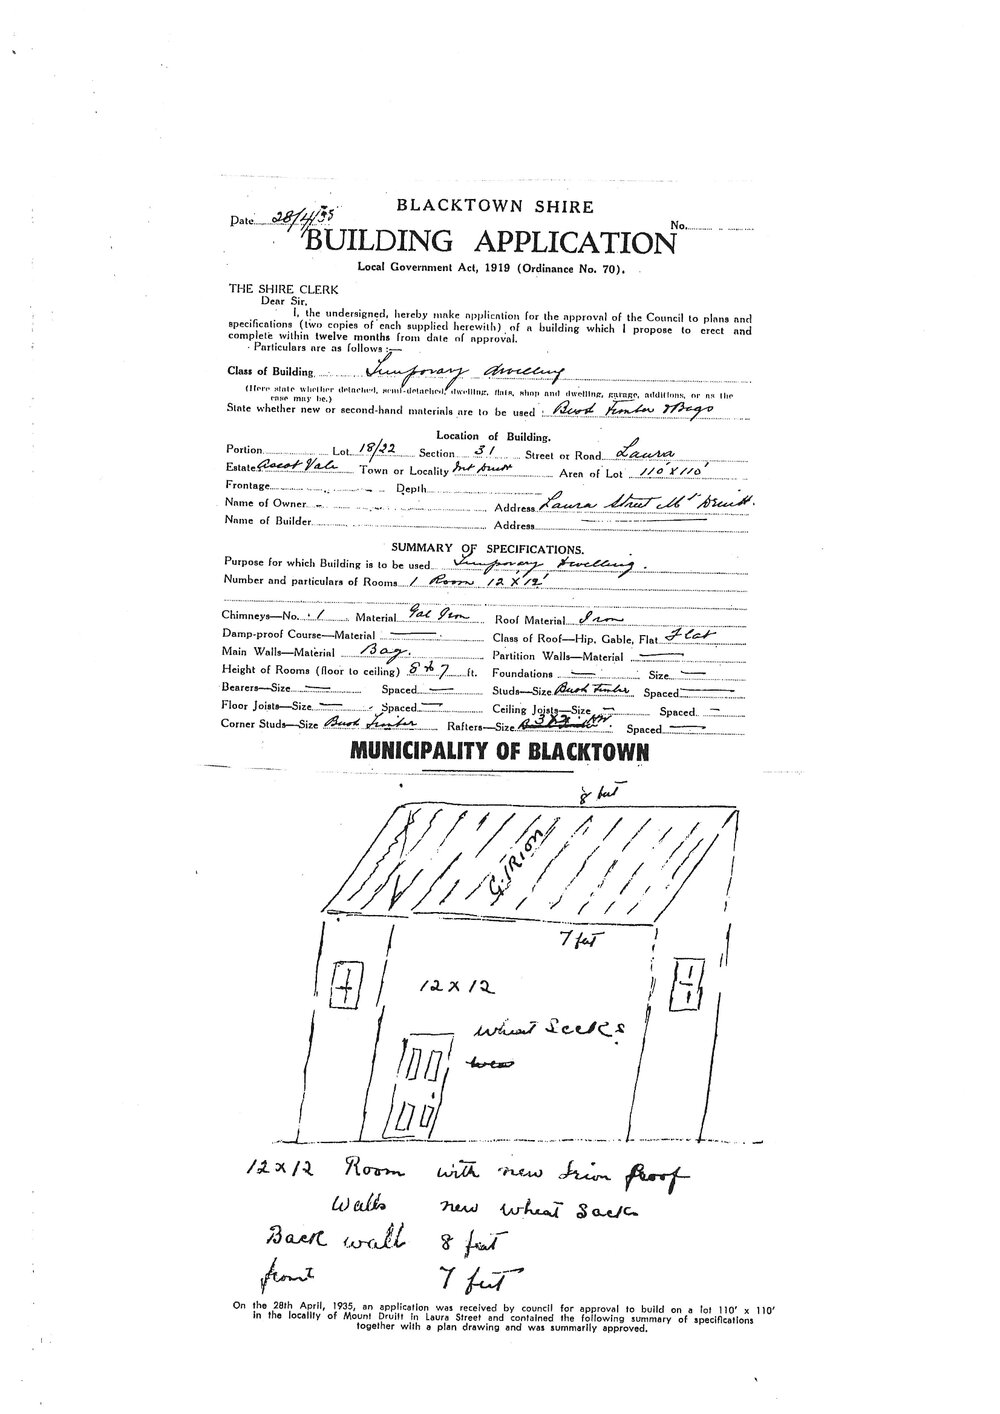 BLACKTOWN SHIRE
Date 28/4/35 No.
BUILDING APPLICATION
Local Government Act, 1919 (Ordinance No. 70).
THE SHIRE CLERK
Dear Sir,
I, the undersigned, hereby make application for the approval of the Council to plans and
specifications (two copies of each supplied herewith) of a building which I propose to erect and
complete within twelve months from date of approval.
Particulars are as follows :—
Class of Building Temporary dwelling
(Here state whether detached, semi-detached, dwelling, flats, shop and dwelling, garage, additions, or as the
case may be.)
State whether new or second-hand materials are to be used : Bush Timber & Bags
Location of Building.
Portion Lot 18/22 Section 31 Street or Road Laura
Estate Ascot Vale Town or Locality Mt Druitt Area of Lot 110' x 110'
Frontage Depth
Name of Owner Address Laura Street Mt Druitt.
Name of Builder Address
SUMMARY OF SPECIFICATIONS.
Purpose for which Building is to be used Temporary dwelling.
Number and particulars of Rooms 1 Room 12' x 12'
Chimneys—No. 1 Material Gal Iron Roof Material Iron
Damp-proof Course—Material — Class of Roof—Hip, Gable, Flat Flat
Main Walls—Material Bag. Partition Walls—Material —
Height of Rooms (floor to ceiling) 8 to 7 ft. Foundations — Size —
Bearers—Size — Spaced — Studs—Size Bush Timber Spaced —
Floor Joists—Size — Spaced — Ceiling Joists—Size — Spaced —
Corner Studs—Size Bush Timber Rafters—Size 3 x 2 Spaced —
MUNICIPALITY OF BLACKTOWN
8 feet
G. IRION
7 feet
12 x 12
wheat Sacks
12 x 12 Room with new Irion Proof
Walls new wheat Sacks
Back wall 8 feet
front 7 feet
On the 28th April, 1935, an application was received by council for approval to build on a lot 110' x 110'
in the locality of Mount Druitt in Laura Street and contained the following summary of specifications
together with a plan drawing and was summarily approved.